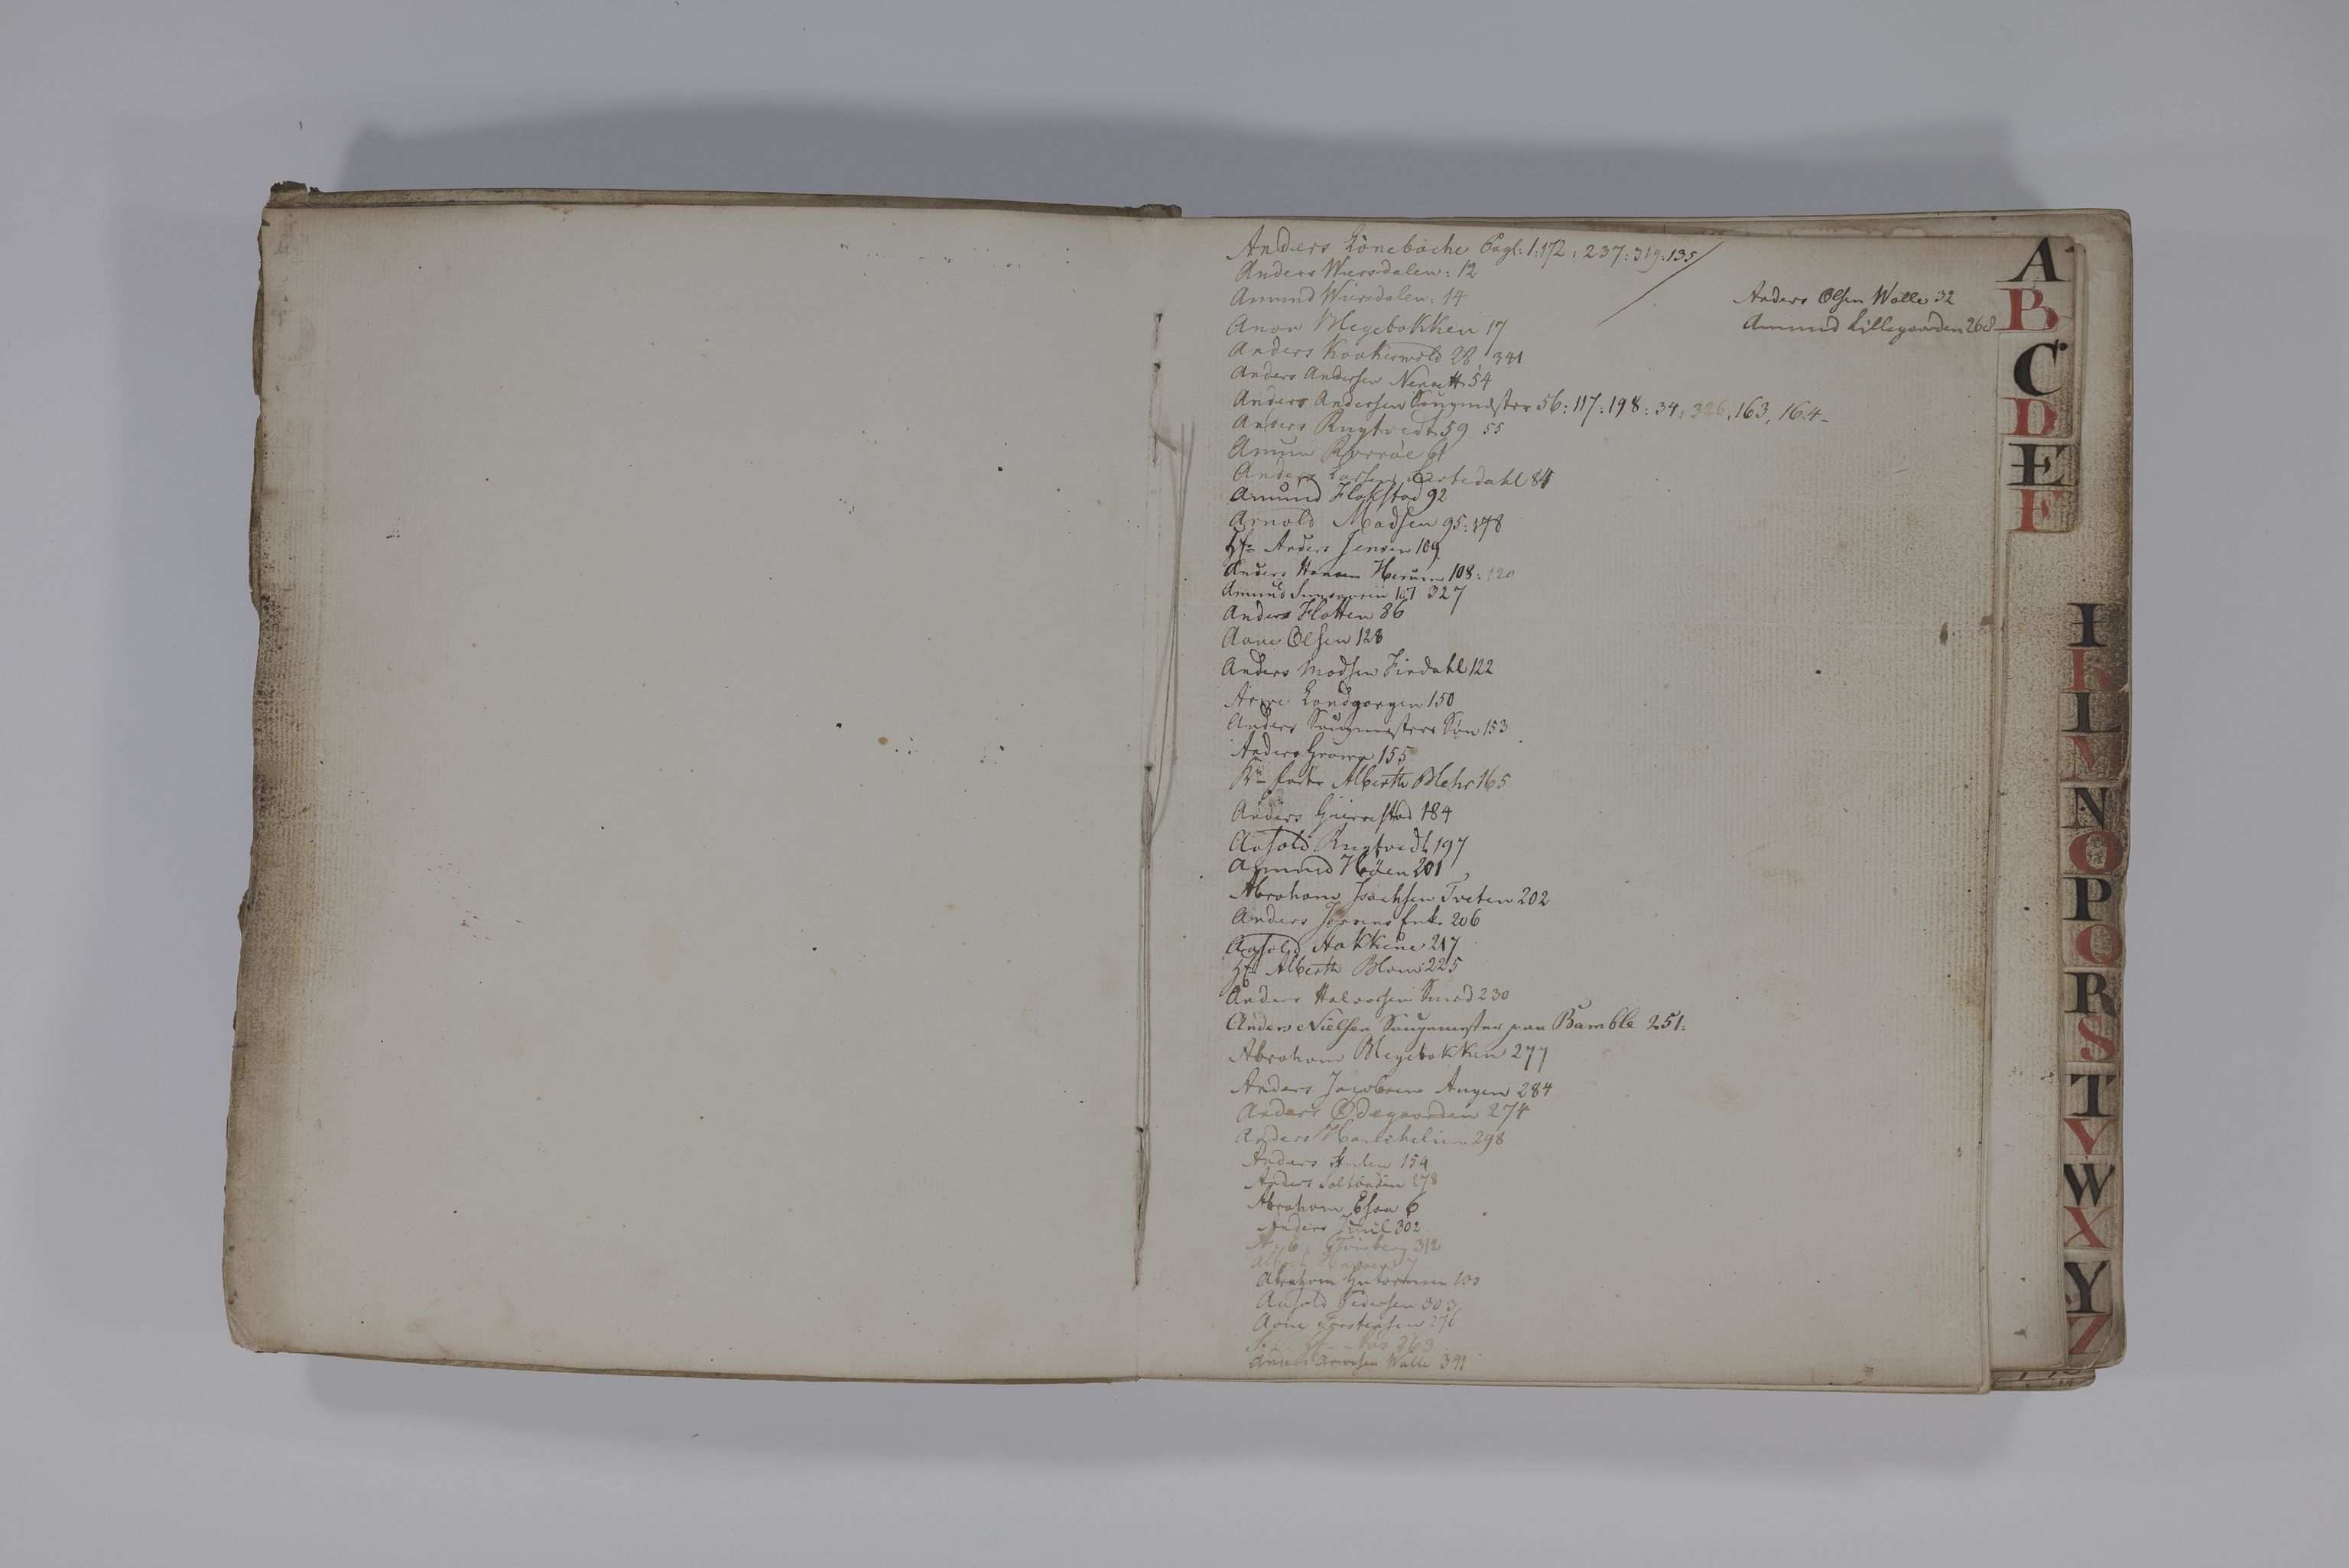 Anders Lönebache Pagl: 1: 172: 237: 319: 135
Anders Wiersdalen: 12
Amund Wiersdalen: 14
Anon Blegebakken 17
Anders 28, 341
Anders Andersen 54
Anders Andersen Saugmester 56: 117: 198: 34: 326, 163, 164
Anders Rugtvedt 59 55
Amun Rörröe 61
Anders Larsen 84
Amund Flakstad 92
Arnold Madsen 95: 178
Hr Anders Jensen 109
Anders Hansen Herum 108: 120
Amund 327
Anders Flotten 86
Aane Olsen 128
Anders Madsen Findahl 122
Arne Landgangen 150
Anders Saugmesters Søn 153
Anders Gromp 155
Alberth Blehr 165
Anders 184
Aasold Rugtvedt 197
Amund Høen 201
Abraham Isachsen Tveten 202
Anders Jörgens Enke 206
Aasold Stokkene 217
Hr Alberth Blom 225
Anders Halvorsen Smed 230
Anders Nielsen Saugemester paa Bamble 251:
Abraham Blegebakken 277
Anders Jacobsen Augen 284
Anders Ødegaarden 274
Anders 298
Anders 154
Anders Saltboden 278
Abraham 6
Anders Juul 302
312
7
Abraham Guttormsen 100
Aasold Pedersen 303
Aane Torstensen 276
263
Anders Arnesen Walle 341
Anders Olsen Walle 32
Amund Lillegaarden 268
A
B
C
D
E
F
I
K
L
M
N
O
P
Q
R
S
T
V
W
X
Y
Z